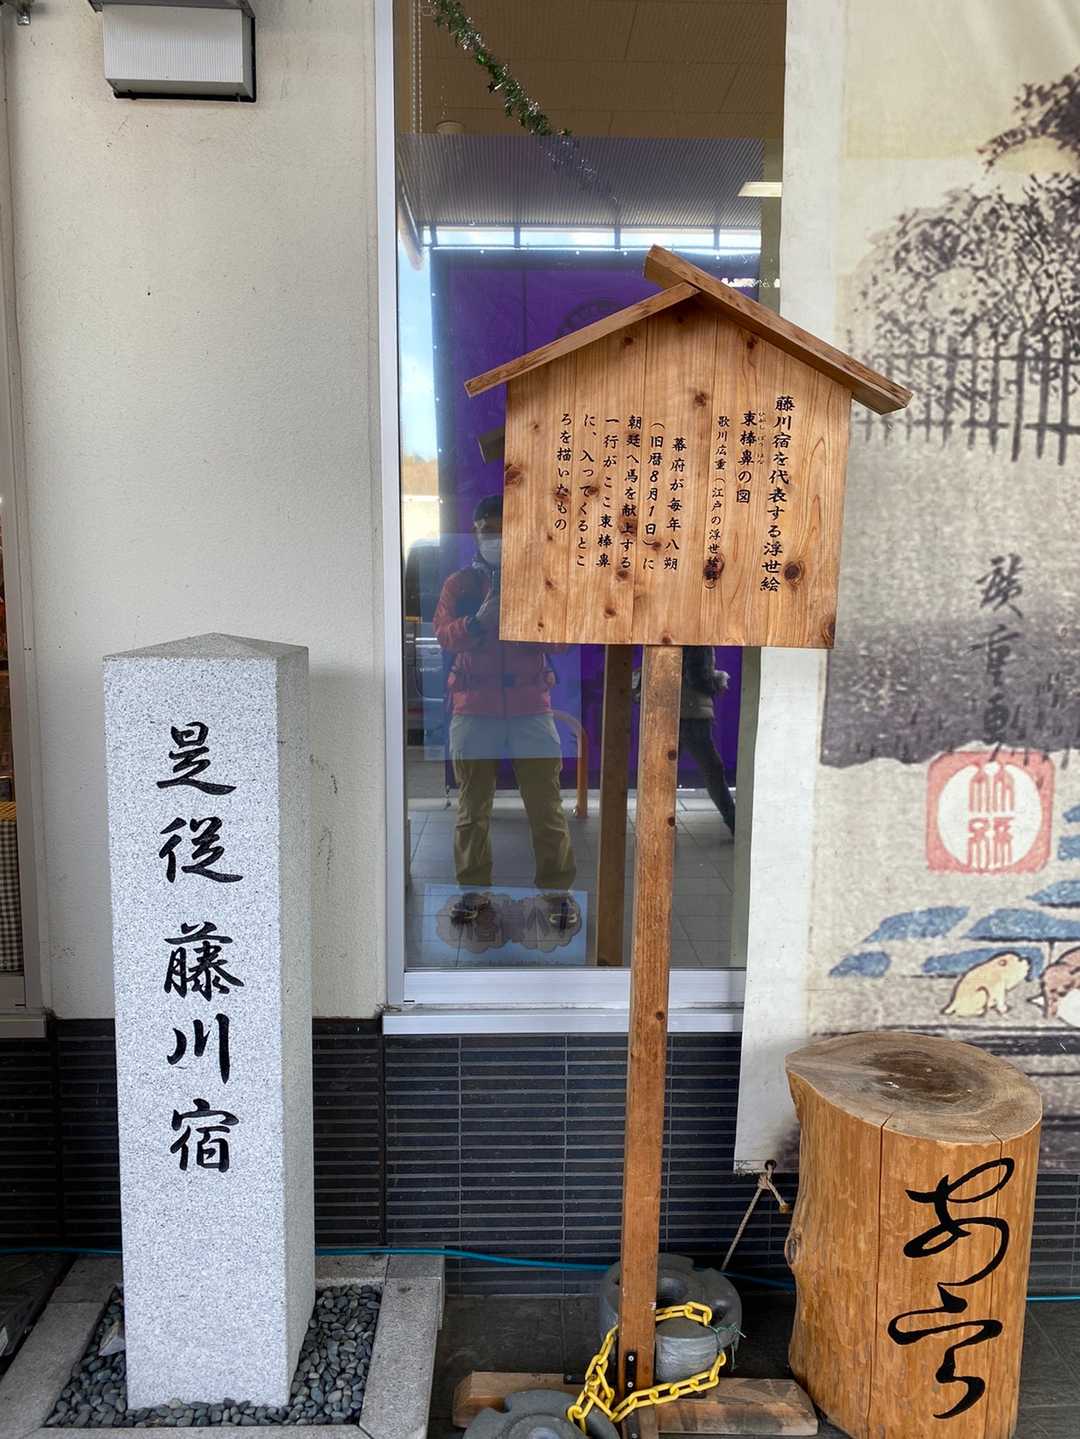 藤川宿を代表する浮世絵
東棒鼻の図
ひがしぼうはな
歌川広重（江戸の浮世絵師）
幕府が毎年八朔
（旧暦8月1日）に
朝廷へ馬を献上する
一行がここ東棒鼻
に、入ってくるとこ
ろを描いたもの
是従藤川宿
廣重画